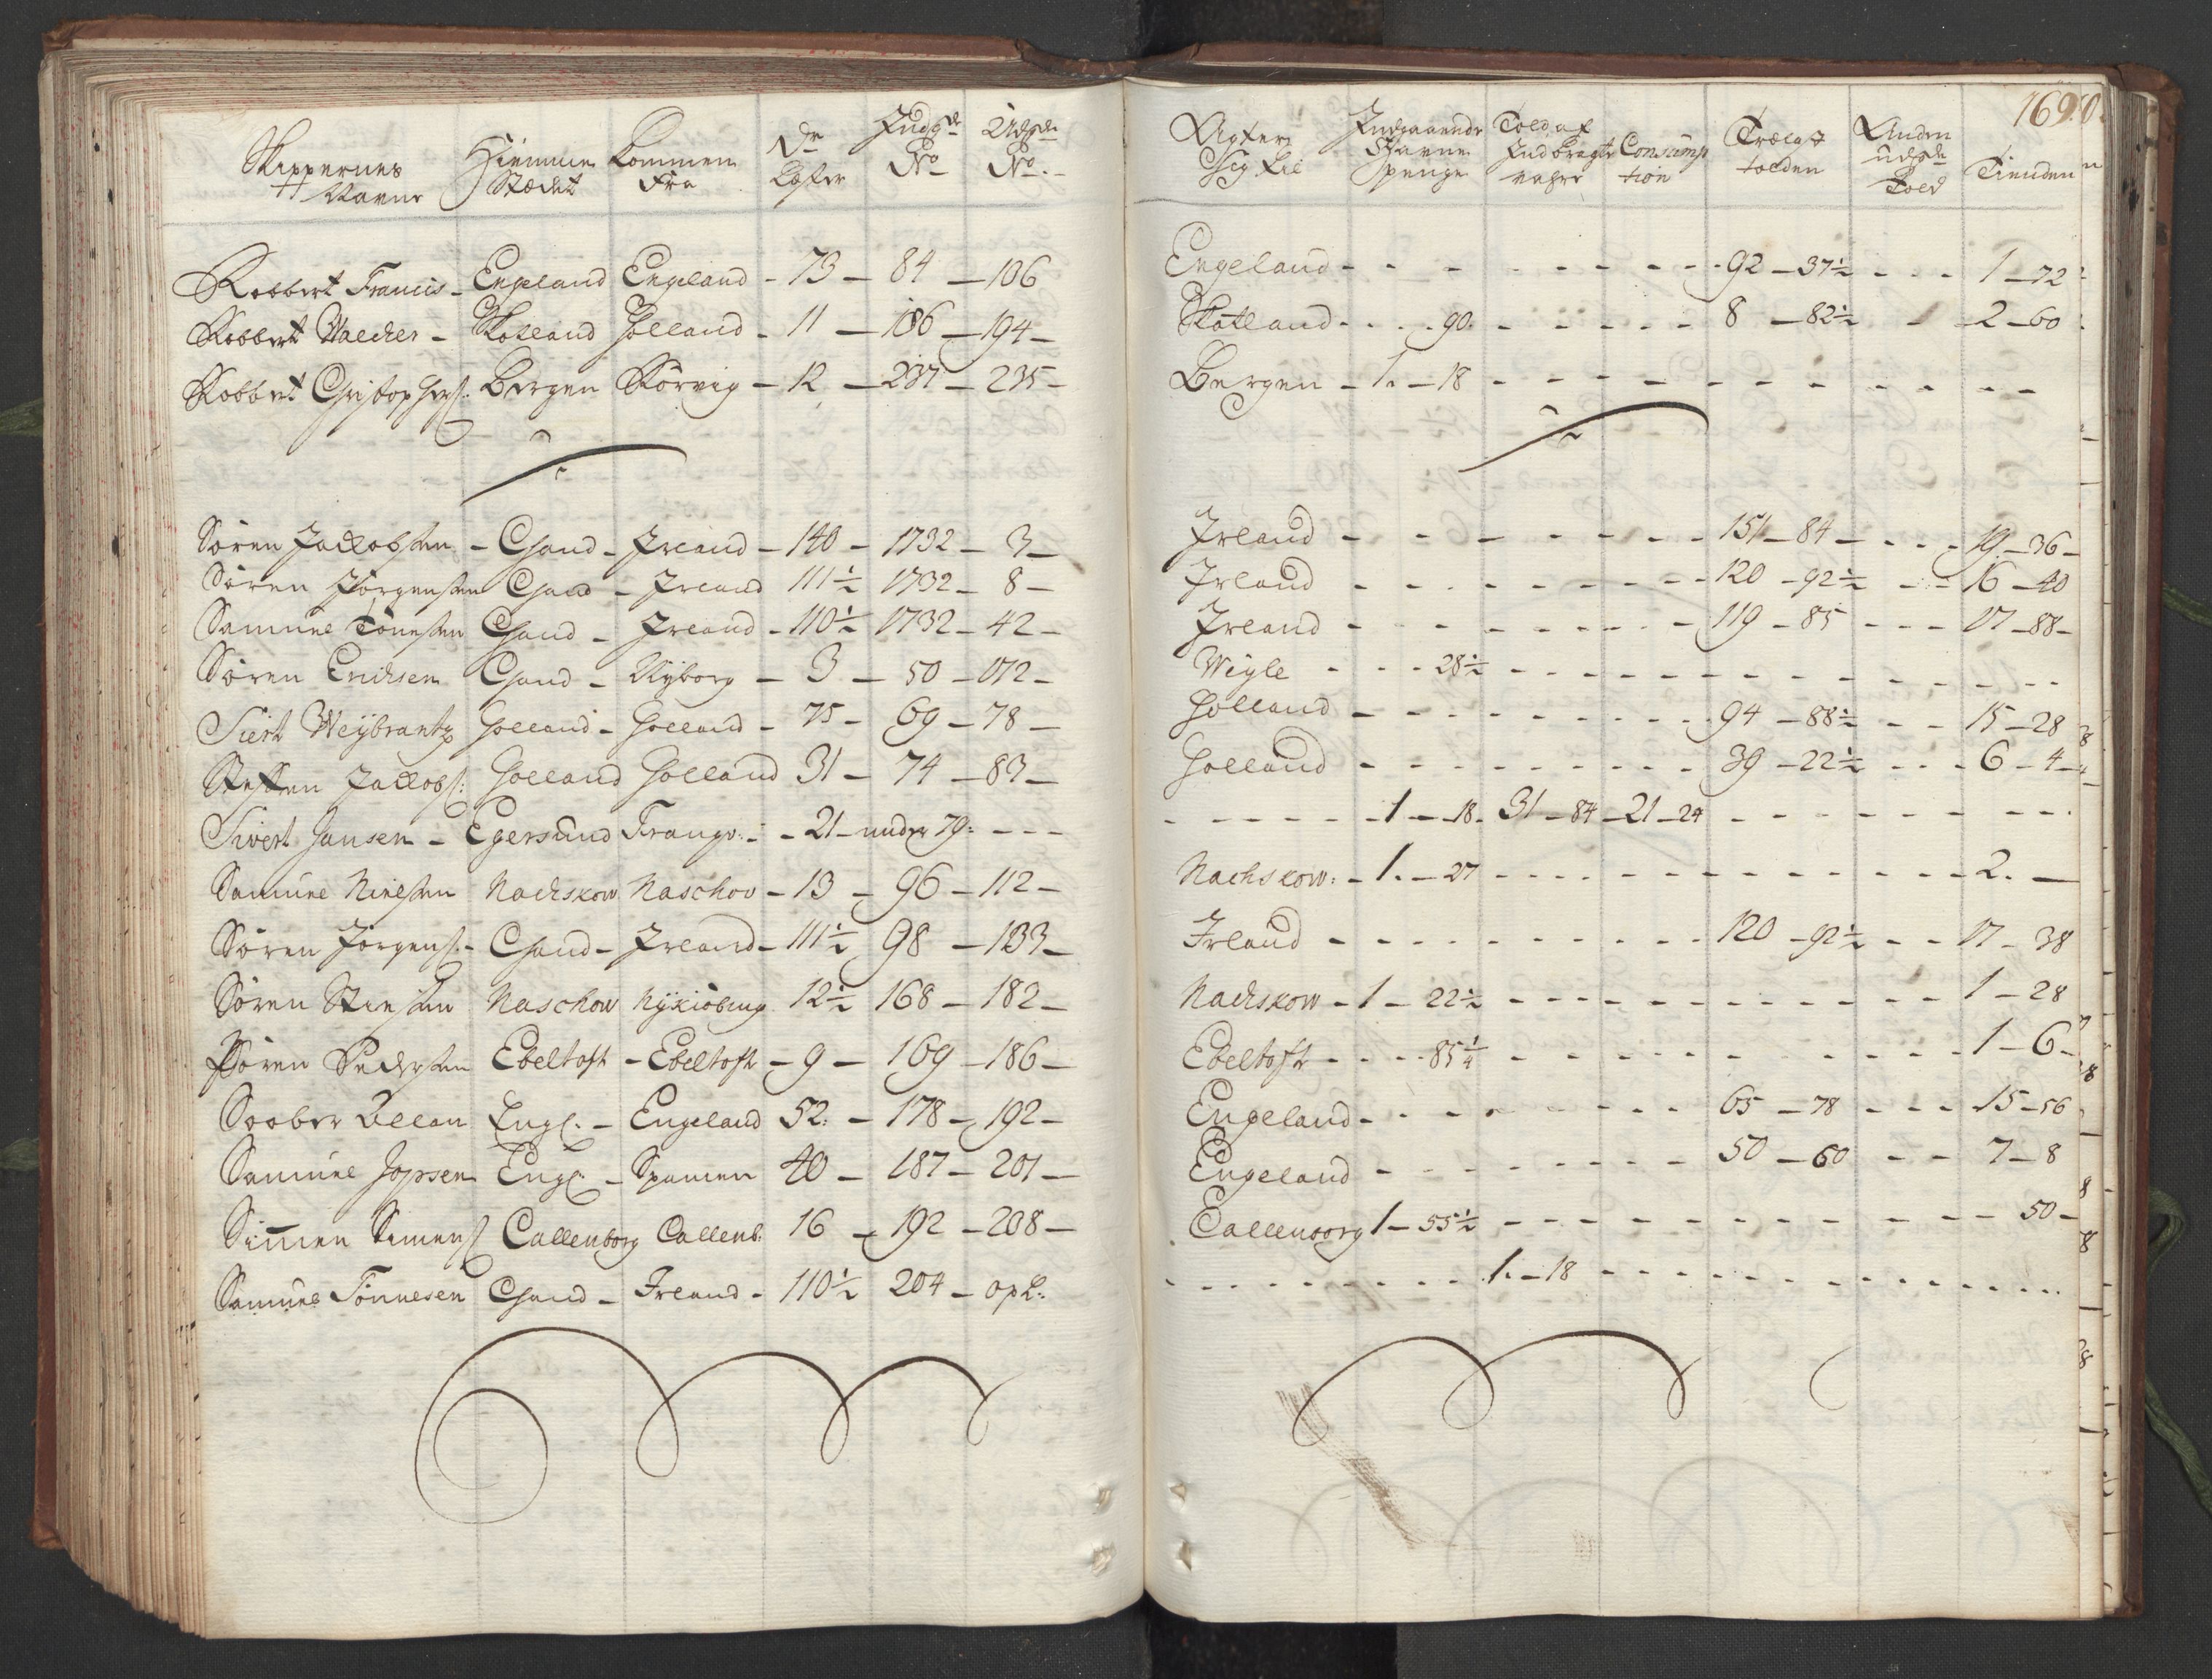 Skippernes Navne | Hiemme Stædet | Kommen Fra | Dr. Læster | Indg. No | Udg. No.
Robbert Francis - Engeland Engeland - 73 - 84 - 106
Robbert Walcher - Skotland Holland - 11 - 186 - 194 -
Robbert Christophers: Bergen Körvig - 12 - 237 - 235 -
Sören Jackobsen - Chsand - Irland - 140 - 1732 - 3 -
Sören Jörgensen Chsand - Irland 111½ 1732 - 8 -
Samuel Tönesen Chsand - Irland - 110½ 1732 - 42 -
Sören Erichsen Chsand - Nyborg - 3 - 50 - 172 -
Siert Weÿbrantz Holland - Holland - 75 - 69 - 78 -
Steffen Jackobs: Holland Holland 31 - 74 - 83 -
Sivert Jansen - Egersund Frangr: - 21 - under 79: - - -
Samuel Nielsen Nachskow Naschov - 13 - 96 - 112 -
Sören Jörgens: - Chsand - Irland - 111½ 98 - 133 -
Sören Stiesen Naschow Nÿkiöbing 12½ 168 - 182 -
Sören Pedersen Ebeltoft - Ebeltoft - 9 - 169 - 186 -
Allan Engl: - Engeland 52: - 178 - 192 -
Samuel Jopsen Engl: - Spanien 40 - 187 - 201 -
Simen Simens: Callenborg Callenb: 16 - 192 - 208 -
Samuel Tönnesen Chsand - Irland - 110½ 204 - opl:
169
Agter Sig til | Indgaaende Havne penge | Told af Indbragte vahre | Consumption | Trælast tolden | Anden udg. Told | Tienden
Engeland - - - 92 - 37½ - - - 1 - 72
Skotland - - - 90 - - - 8 - 82½ - 2 - 60
Bergen - 1. - 18 - - -
Irland - - - 151 - 84 - - - 19 - 36 -
Irland - - - 120 - 92½ - - 16 - 40
Irland - - - 119 - 85 - - - 17 - 88 -
Weÿle - - - 28½ - - -
Holland - - - 94 - 88½ - - 15 - 28
Holland - - - 39 - 22½ - - - 6 - 4 -
- - - 1 - 18 - 31 - 84 - 21 - 24 - - -
Nachskow: - 1. - 27 - - - 2. -
Irland - - - 120 - 92½ - - 17 - 38
Nachskow - 1 - 22½ - - - 1 - 28
Ebeltoft - - - 85¼ - - - 1 - 6 -
Engeland - - - 65 - 78 - - - 15 - 56
Engeland - - - 50 - 60 - - 7 - 8
Callenborg 1 - 55½ - - - 50 -
- - - 1. - 18 - - -